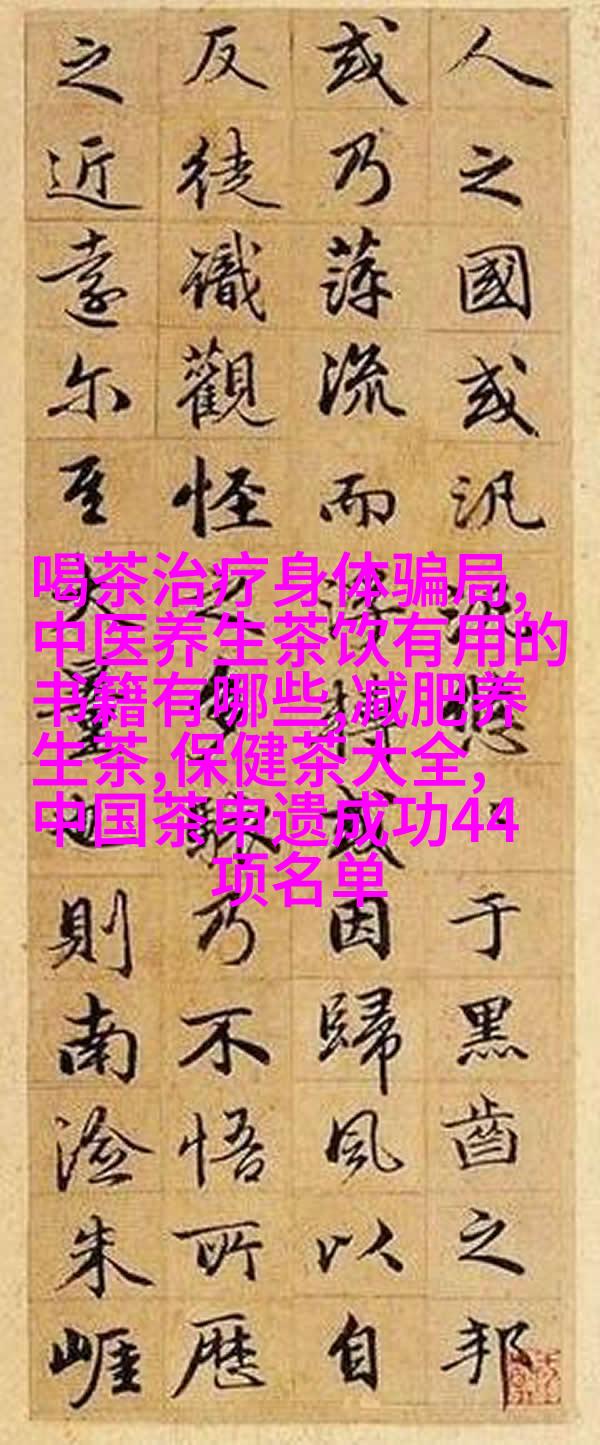 人之國或汎汎悠于黑齒之邦
或乃萍流而浮轉或因歸風以自
反徒識觀怪之多駭乃不悟所歷
之近遠尔至大量也則南澰朱崕
喝茶治疗身体骗局,
中医养生茶饮有用的
书籍有哪些,减肥养
生茶,保健茶大全,
中国茶申遗成功44
项名单